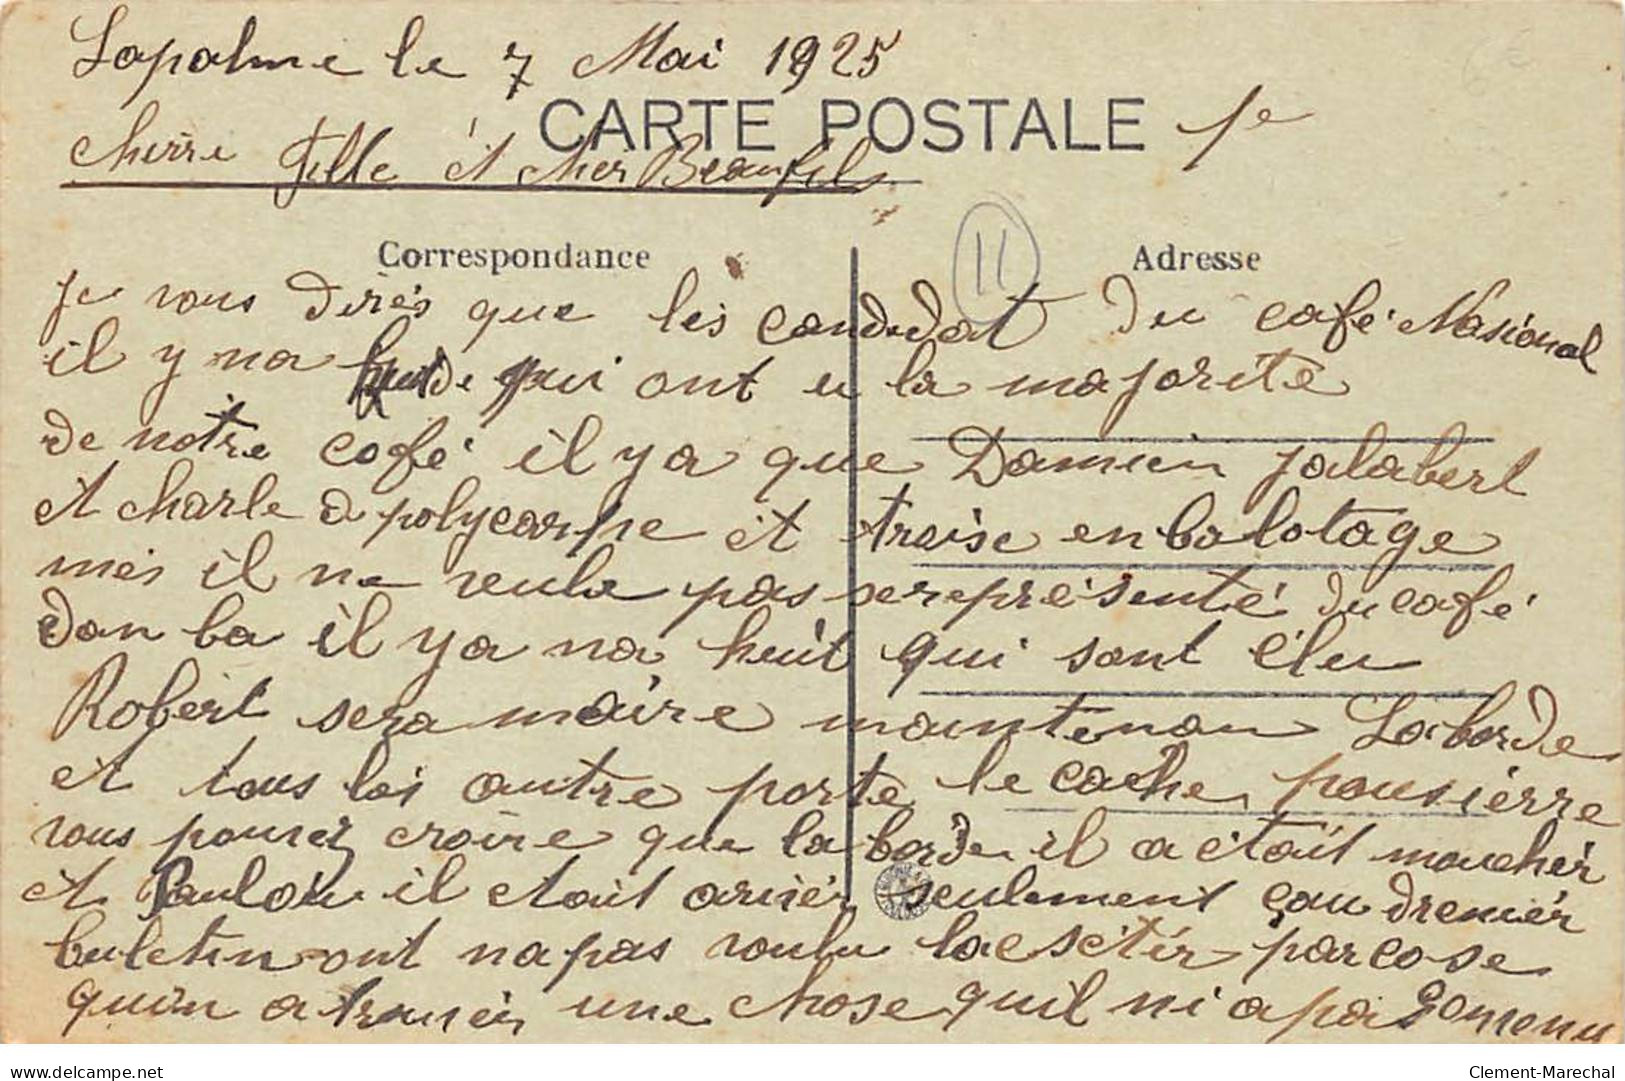 Lapalme le 7 Mai 1925
CARTE POSTALE 1e
cherre fille et cher Beaufils
Correspondance
11
Adresse
je vous dirés que les candidat du café Nasional
il y na qui ont u la majorité
de notre café il y a que Damien jalabert
et charle a polycarpe et traise en balotage
mes il ne veule pas se représenté du café
dan ba il y a na huit qui sont élu
Robert sera maire maintenan Laborde
et tous les autre porte le cache pousiérre
vous pourez croire que laborde il a etait moucher
et il etait ariser seulement çau drenier
buletin ont na pas voulu lacsétér parcose
quon a trouvér une chose quil ni a pa
Clement-Marechal